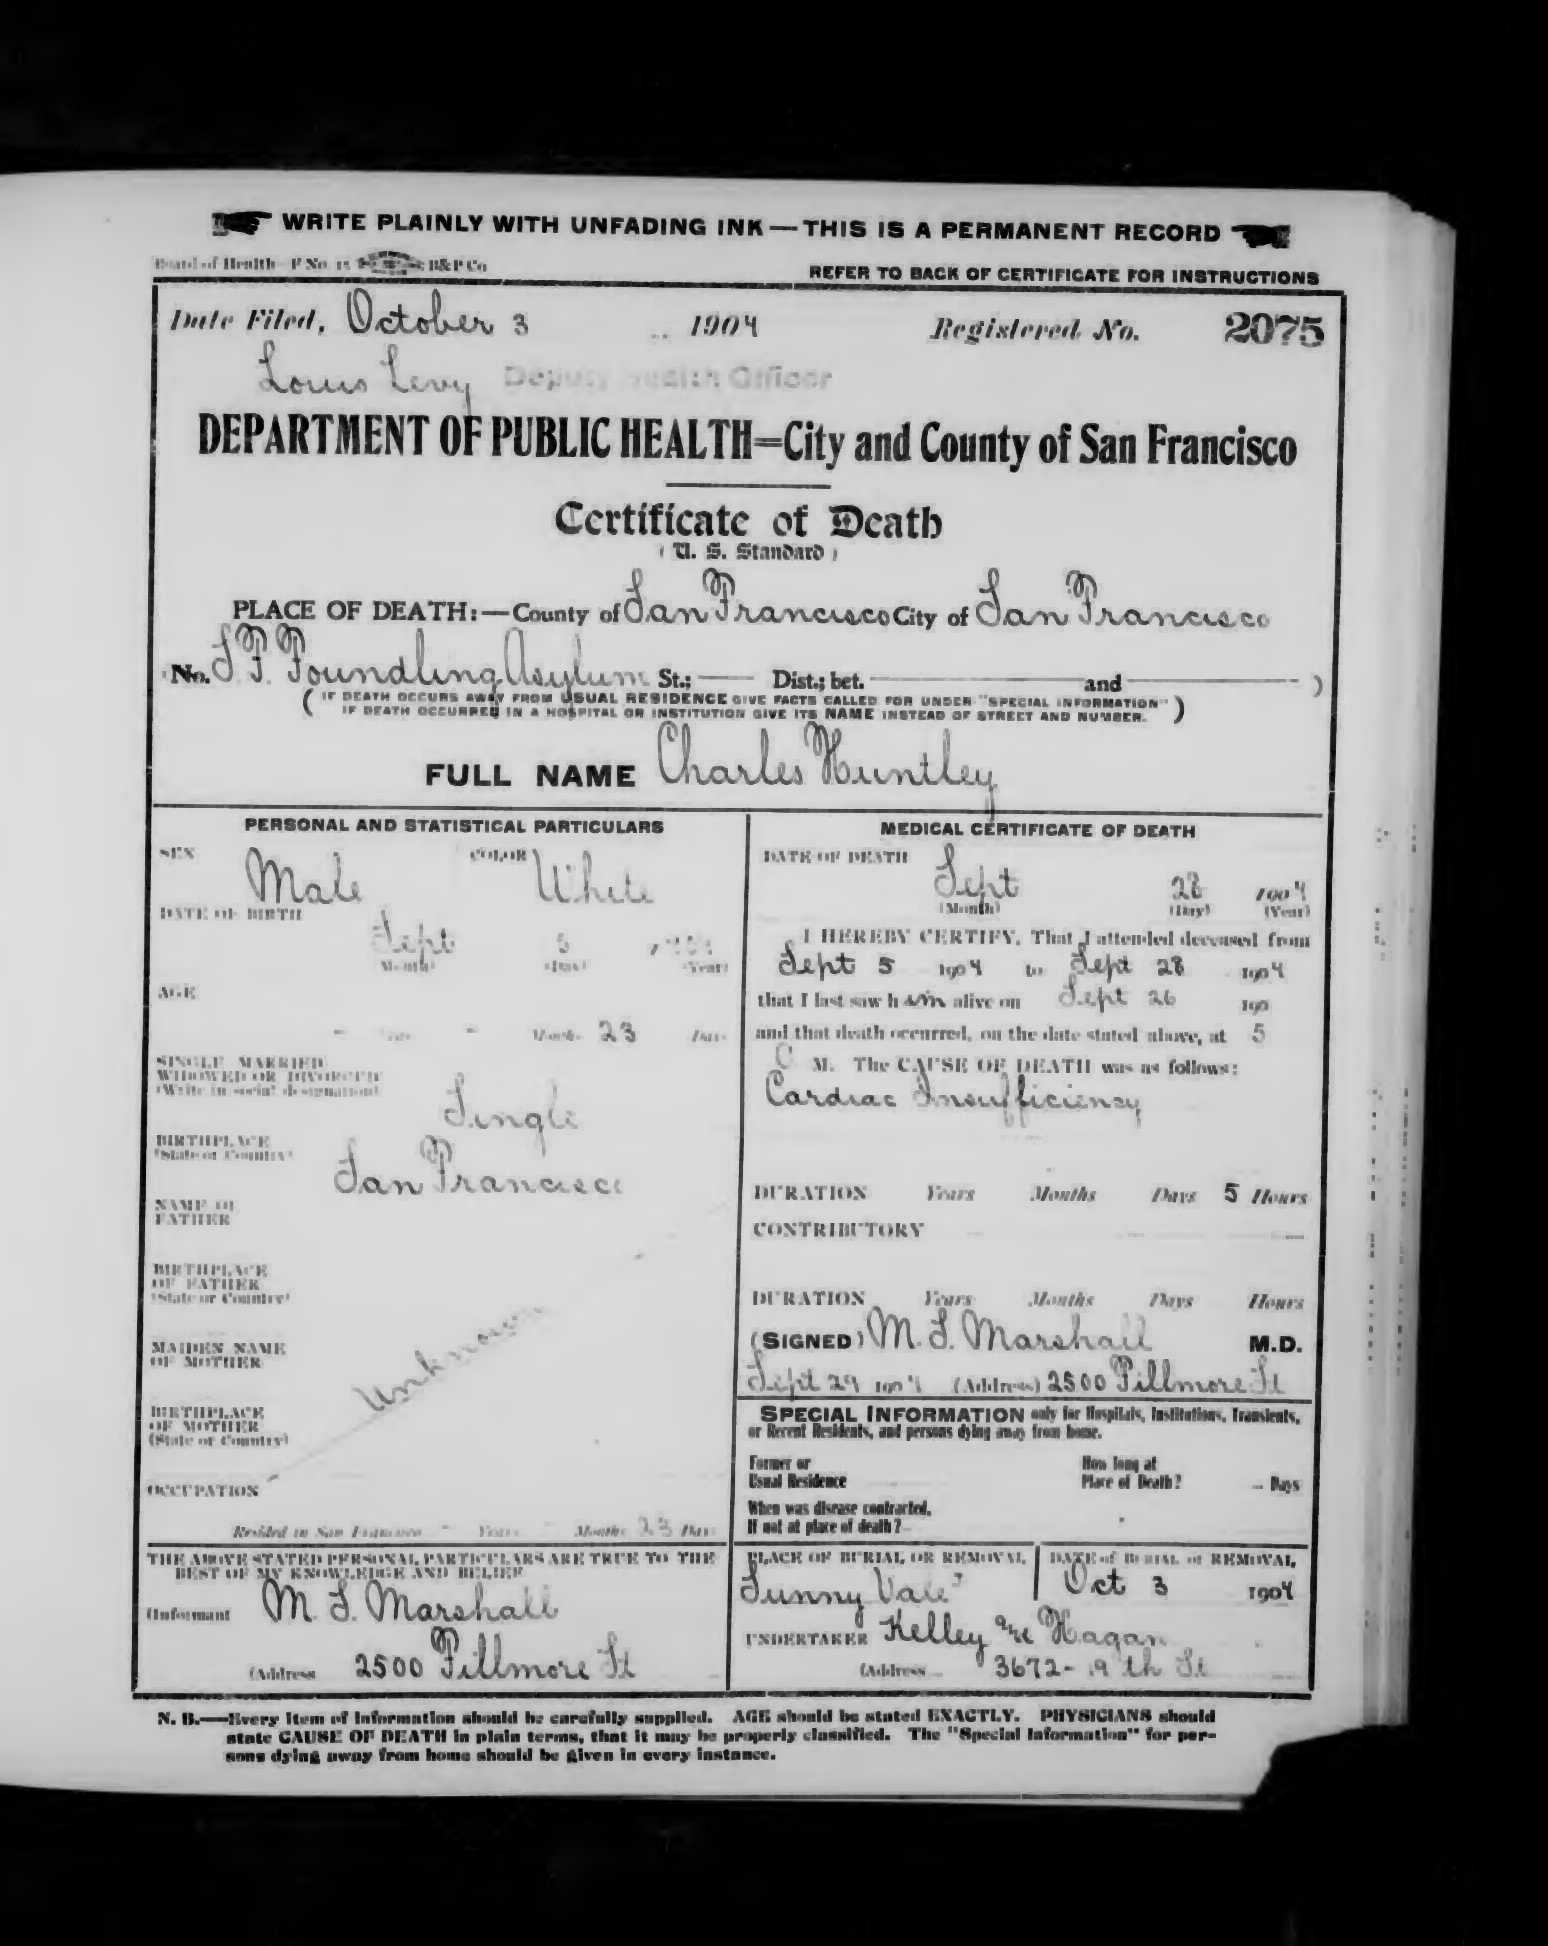 WRITE PLAINLY WITH UNFADING INK — THIS IS A PERMANENT RECORD
Board of Health F No. 15 B&P Co
REFER TO BACK OF CERTIFICATE FOR INSTRUCTIONS
Date Filed, October 3 1904 Registered No. 2075
Louis Levy Deputy Health Officer
DEPARTMENT OF PUBLIC HEALTH=City and County of San Francisco
Certificate of Death
(U. S. Standard)
PLACE OF DEATH:—County of San Francisco City of San Francisco
No. S. F. Foundling Asylum St.; —— Dist.; bet. —— and ——)
(IF DEATH OCCURS AWAY FROM USUAL RESIDENCE GIVE FACTS CALLED FOR UNDER "SPECIAL INFORMATION"
IF DEATH OCCURRED IN A HOSPITAL OR INSTITUTION GIVE ITS NAME INSTEAD OF STREET AND NUMBER.)
FULL NAME Charles Huntley
PERSONAL AND STATISTICAL PARTICULARS
SEX Male COLOR White
DATE OF BIRTH
Sept 5 1904
(Month) (Day) (Year)
AGE
- Years - Months 23 Days
SINGLE MARRIED
WIDOWED OR DIVORCED
(Write in social designation)
Single
BIRTHPLACE
(State or Country)
San Francisco
NAME OF
FATHER
BIRTHPLACE
OF FATHER
(State or Country)
MAIDEN NAME
OF MOTHER
Unknown
BIRTHPLACE
OF MOTHER
(State or Country)
OCCUPATION
Resided in San Francisco - Years - Months 23 Days
THE ABOVE STATED PERSONAL PARTICULARS ARE TRUE TO THE
BEST OF MY KNOWLEDGE AND BELIEF
(Informant M. S. Marshall
(Address 2500 Fillmore St
MEDICAL CERTIFICATE OF DEATH
DATE OF DEATH
Sept 28 1904
(Month) (Day) (Year)
I HEREBY CERTIFY, That I attended deceased from
Sept 5 1904 to Sept 28 1904
that I last saw h im alive on Sept 26 190
and that death occurred, on the date stated above, at 5
M. The CAUSE OF DEATH was as follows:
Cardiac Insufficiency
DURATION Years Months Days 5 Hours
CONTRIBUTORY
DURATION Years Months Days Hours
(SIGNED) M. S. Marshall M.D.
Sept 29 1904 (Address) 2500 Fillmore St
SPECIAL INFORMATION only for Hospitals, Institutions, Transients,
or Recent Residents, and persons dying away from home.
Former or
Usual Residence
How long at
Place of Death? Days
When was disease contracted,
If not at place of death?
PLACE OF BURIAL OR REMOVAL
Sunny Vale
DATE of BURIAL or REMOVAL
Oct 3 1904
UNDERTAKER Kelley and Hagan
(Address 3672- 19 th St
N. B.—Every item of information should be carefully supplied. AGE should be stated EXACTLY. PHYSICIANS should
state CAUSE OF DEATH in plain terms, that it may be properly classified. The "Special Information" for per-
sons dying away from home should be given in every instance.